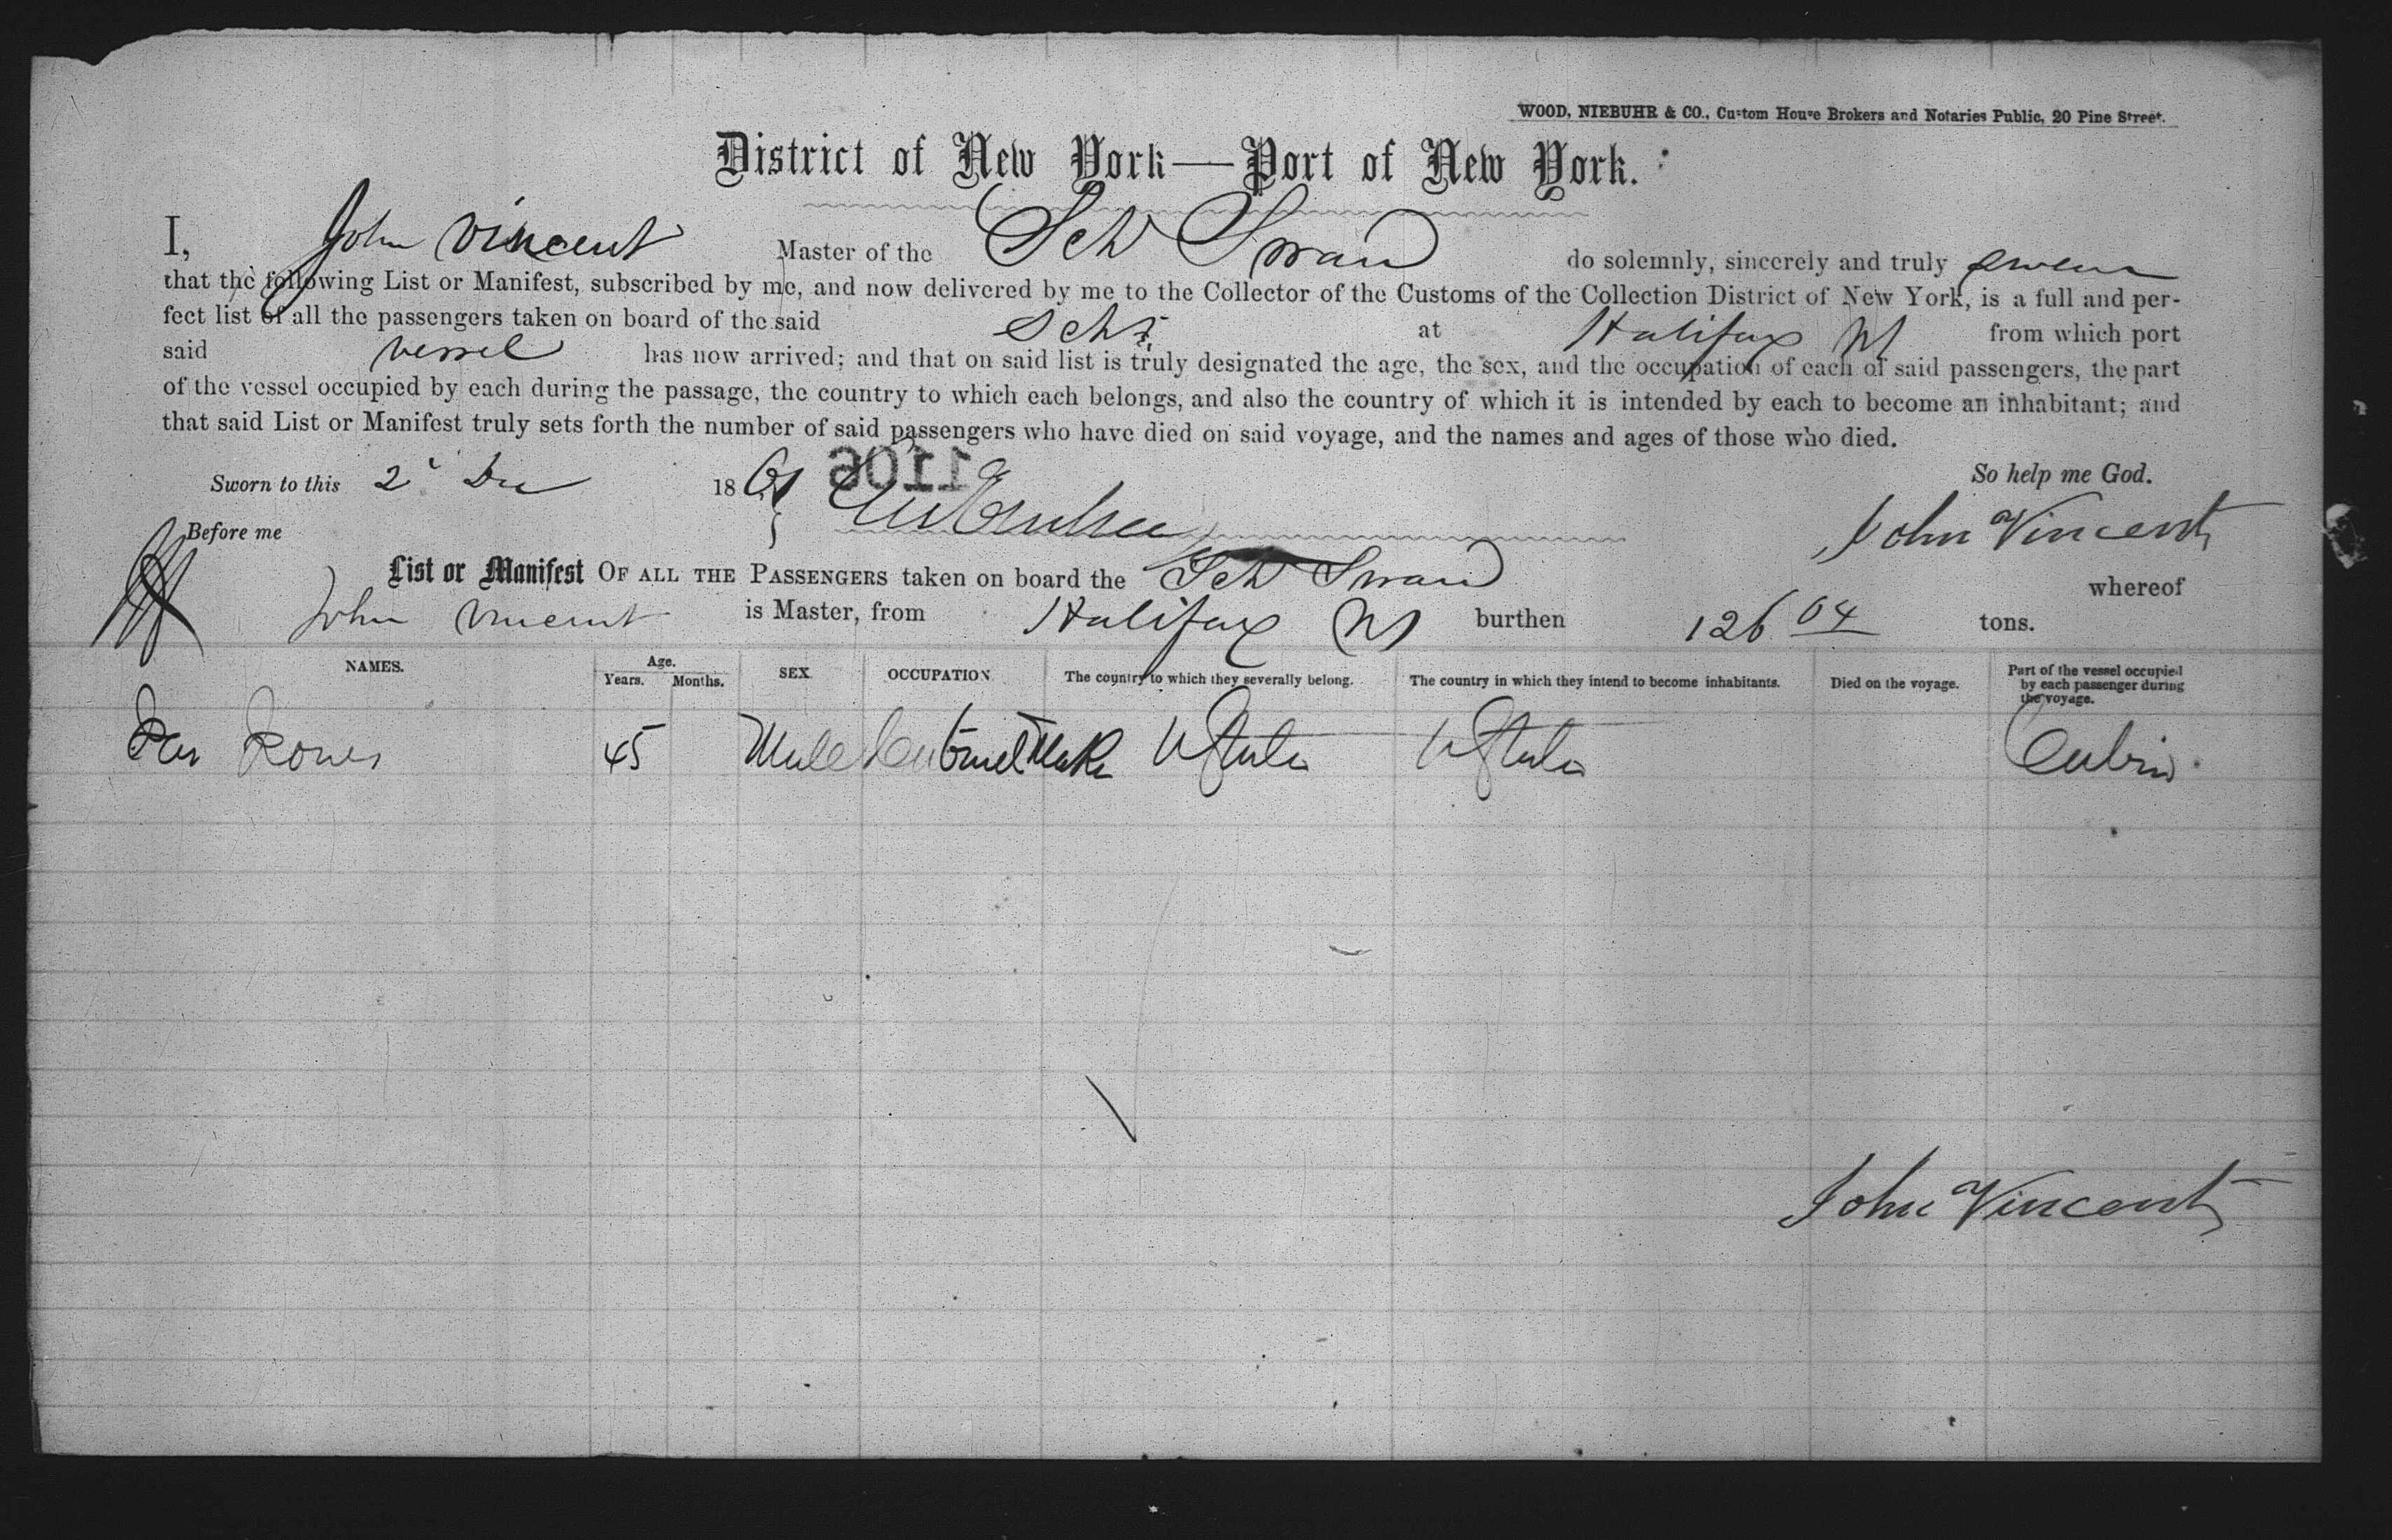 WOOD, NIEBUHR & CO., Custom House Brokers and Notaries Public, 20 Pine Street.
District of New York—Port of New York.
I, John Vincent Master of the Sch Swan do solemnly, sincerely and truly swear
that the following List or Manifest, subscribed by me, and now delivered by me to the Collector of the Customs of the Collection District of New York, is a full and per-
fect list of all the passengers taken on board of the said Schr at Halifax NS from which port
said vessel has now arrived; and that on said list is truly designated the age, the sex, and the occupation of each of said passengers, the part
of the vessel occupied by each during the passage, the country to which each belongs, and also the country of which it is intended by each to become an inhabitant; and
that said List or Manifest truly sets forth the number of said passengers who have died on said voyage, and the names and ages of those who died.
1106
Sworn to this 2 Dec 18 So help me God.
Before me John Vincent
List or Manifest OF ALL THE PASSENGERS taken on board the Sch Swan whereof
John Vincent is Master, from Halifax NS burthen 126 04 tons.
NAMES. Age. Years. Months. SEX. OCCUPATION. The country to which they severally belong. The country in which they intend to become inhabitants. Died on the voyage. Part of the vessel occupied by each passenger during the voyage.
45 Male Cabinet Maker U States U States Cabin
John Vincent